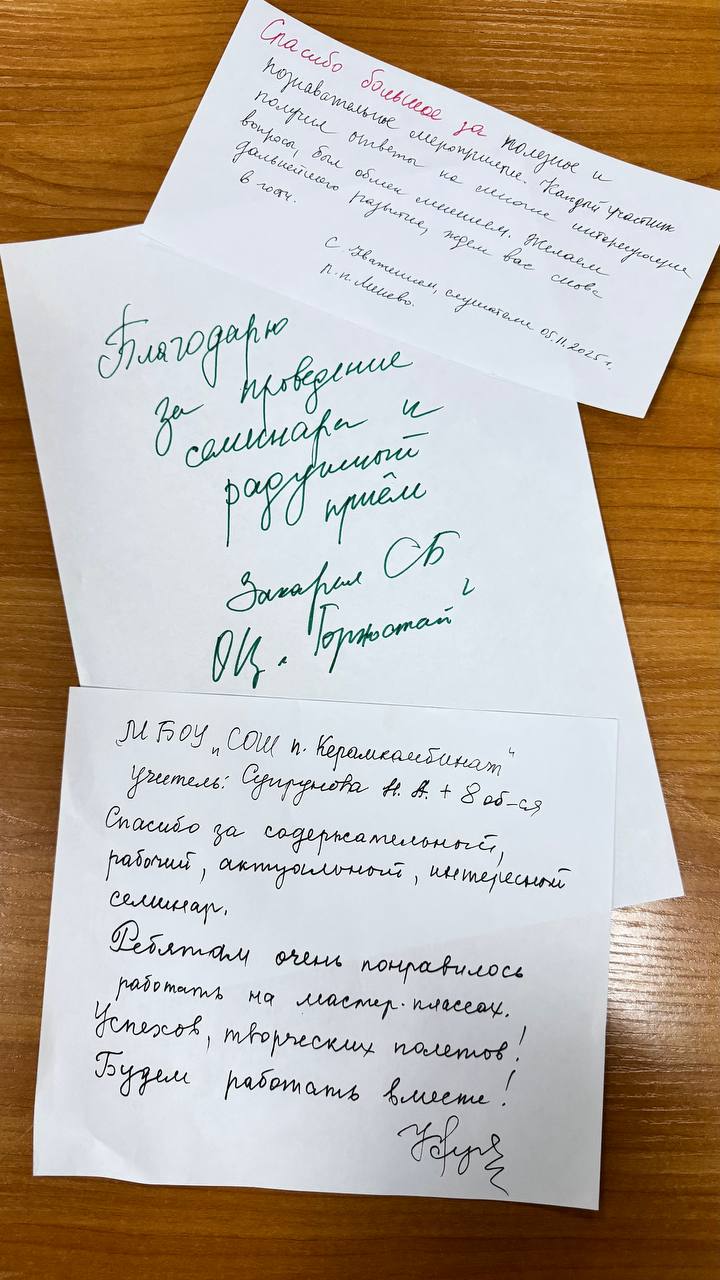 Спасибо большое за полезное и
познавательное мероприятие. Каждый участник
получил ответы на многие интересующие
вопросы, был обмен мнением. Желаем
дальнейшего развития, ждем вас снова
в гости.
С уважением, слушатели 05.11.2025 г.
р.п. Линево.
Благодарю
за проведение
семинара и
радушный
приём
СБ
ОЦ "Горностай"
МБОУ "СОШ п. Керамкомбинат"
учитель: Супрунова Н. А. + 8 об-ся
Спасибо за содержательный,
рабочий, актуальный, интересный
семинар.
Ребятам очень понравилось
работать на мастер-классах.
Успехов, творческих полетов!
Будем работать вместе!